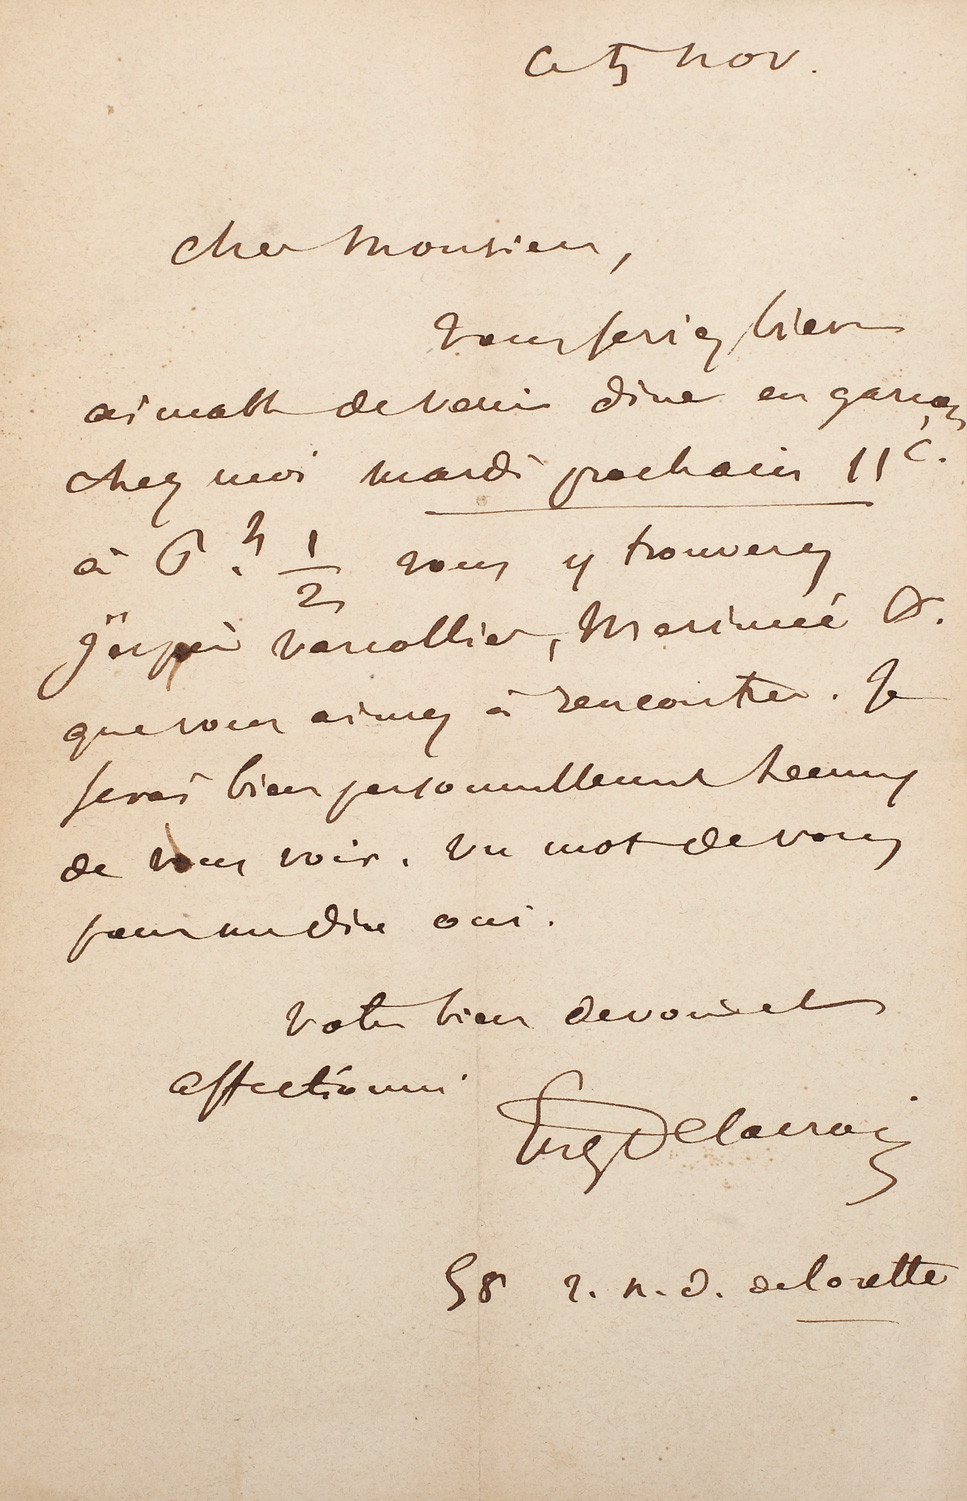 Ce 5 nov.
Cher Monsieur,
Vous seriez bien
aimable de venir diner en garçon
chez moi mardi prochain 11 c.
à 6 h. 1/2 vous y trouverez
j'espère Varcollier, Merimée &.
que vous aimez à rencontrer. Je
serai bien personnellement heureux
de vous voir. Un mot de vous
pour me dire oui.
Votre bien devoué et
affectionné
Eug Delacroix
58 r. n. d. de lorette